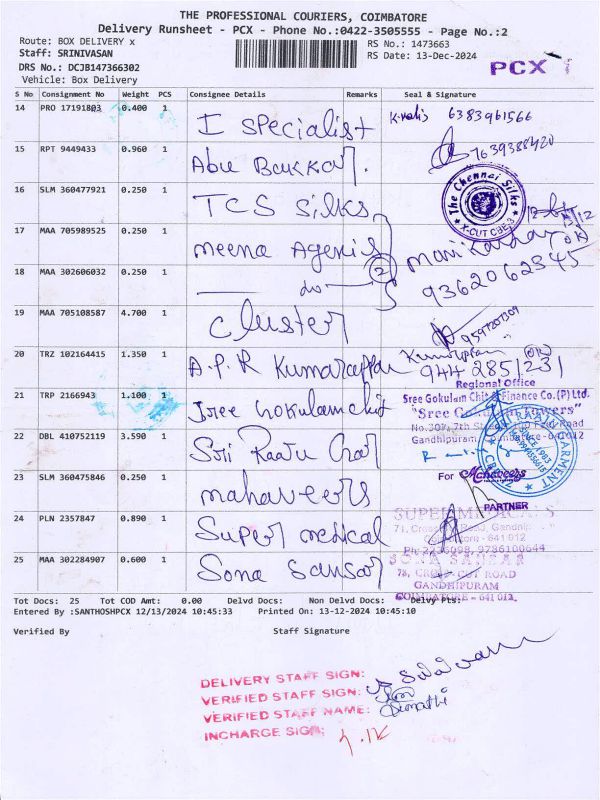 THE PROFESSIONAL COURIERS, COIMBATORE
Delivery Runsheet - PCX - Phone No.:0422-3505555 - Page No.:2
Route: BOX DELIVERY x
Staff: SRINIVASAN
DRS No.: DCJB147366302
Vehicle: Box Delivery
RS No.: 1473663
RS Date: 13-Dec-2024
PCX
S No Consignment No Weight PCS Consignee Details Remarks Seal & Signature
14 PRO 17191803 0.400 1 I specialist 6383961566
15 RPT 9449433 0.960 1 Abu Bakkar. 7639388420
16 SLM 360477921 0.250 1 TCS Silks
The Chennai Silks
X-CUT CBE-3
17 MAA 705989525 0.250 1 meena Agencis
18 MAA 302606032 0.250 1 do 2 9362062345
19 MAA 705108587 4.700 1 cluster
20 TRZ 102164415 1.350 1 A.P.R Kumarappa 944 2851231
Regional Office
21 TRP 2166943 1.100 1 Sree Gokulam chit
Sree Gokulam Chit & Finance Co.(P) Ltd.
"Sree Gokulam Towers"
No.307, 7th Street,
Gandhipuram, Coimbatore - 641012
22 DBL 410752119 3.590 1 Sri Raaju Gar
GARMENT
SINCE 1983
23 SLM 360475846 0.250 1 mahaveers
For Mahaveers
PARTNER
24 PLN 2357847 0.890 1 Super medical
SUPER MEDICALS
71, Cross Cut Road, Gandhipuram
Coimbatore - 641 012
Ph: 2236098, 9786100644
25 MAA 302284907 0.600 1 Sona Sansar
SONA SANSAR
78, CROSS CUT ROAD
GANDHIPURAM
COIMBATORE - 641 012.
Tot Docs: 25 Tot COD Amt: 0.00 Delvd Docs: Non Delvd Docs: Delvy Pts:
Entered By :SANTHOSHPCX 12/13/2024 10:45:33 Printed On: 13-12-2024 10:45:10
Verified By Staff Signature
DELIVERY STAFF SIGN:
VERIFIED STAFF SIGN:
VERIFIED STAFF NAME:
INCHARGE SIGN: